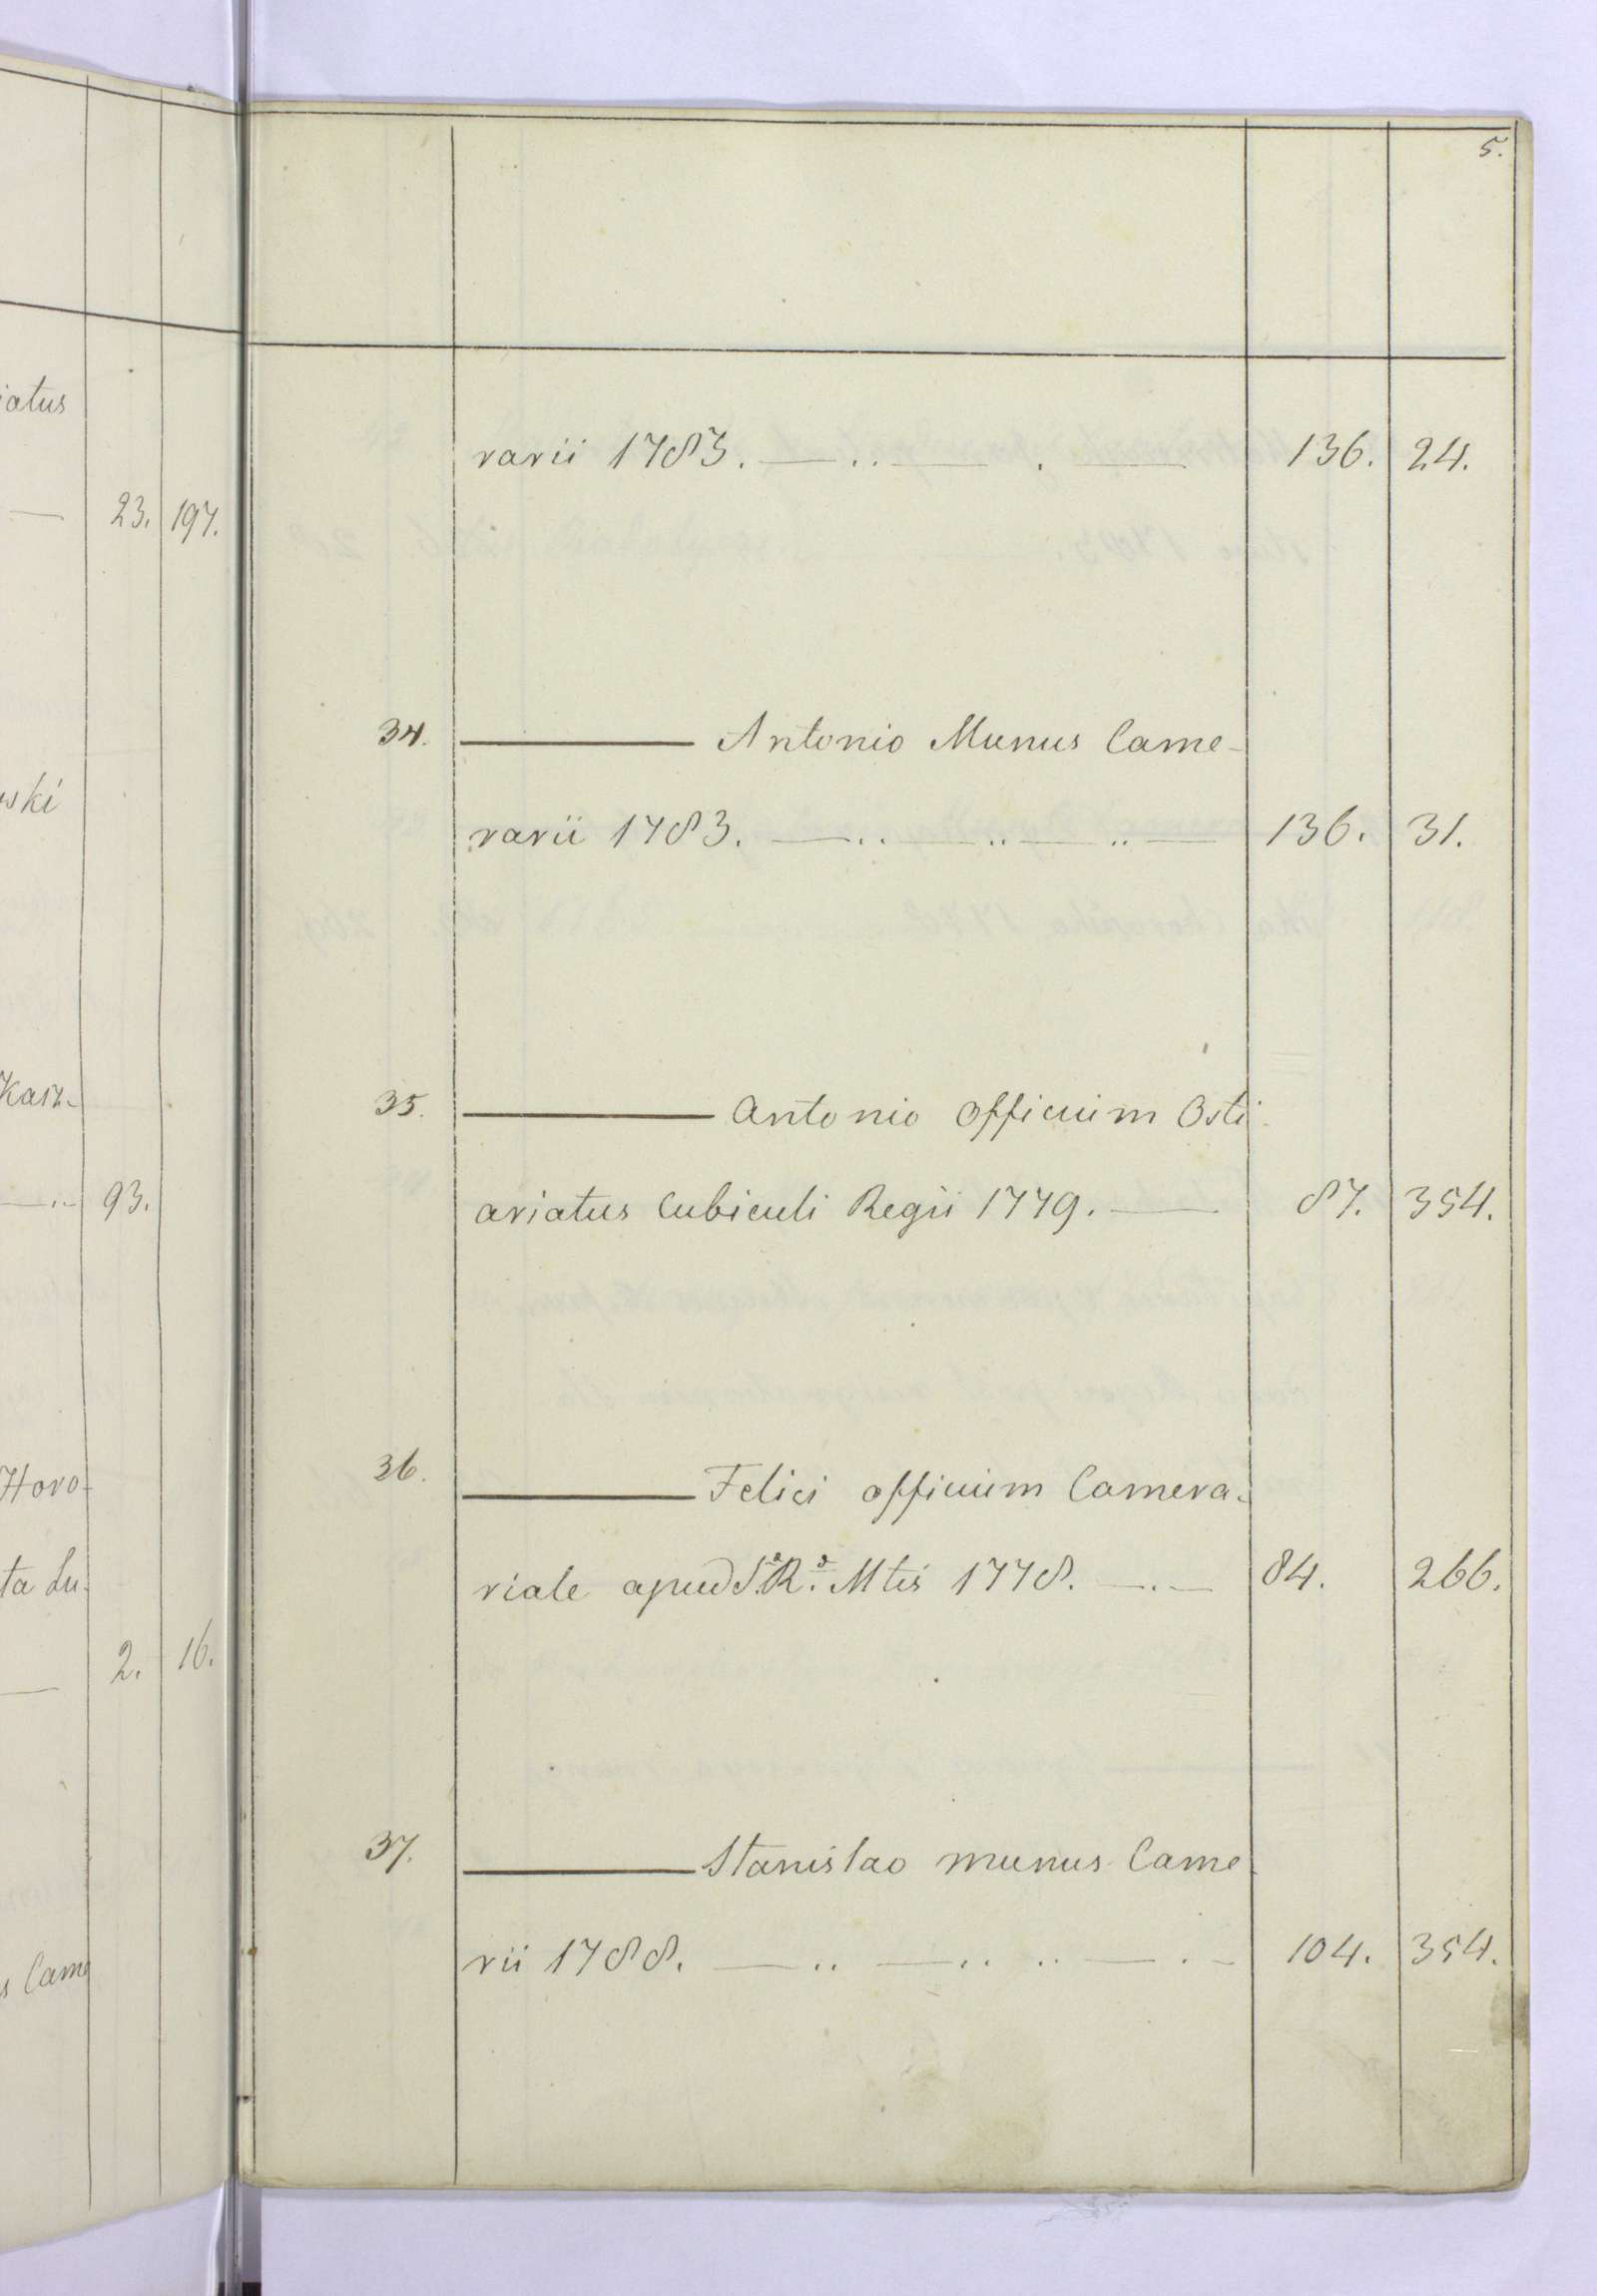 iatus
23. 197.
wski
Kasz-
93.
Horo-
ta Lu-
2. 16.
s Came
5.
rarii 1783. 136. 24.
34. Antonio Munus Came-
rarii 1783. 136. 31.
35. Antonio Officium Osti-
ariatus Cubiculi Regii 1779. 87. 354.
36. Felici officium Camera-
riale apud S.R. Mtis 1778. 84. 266.
37. Stanislao munus Came
rii 1788. 104. 354.